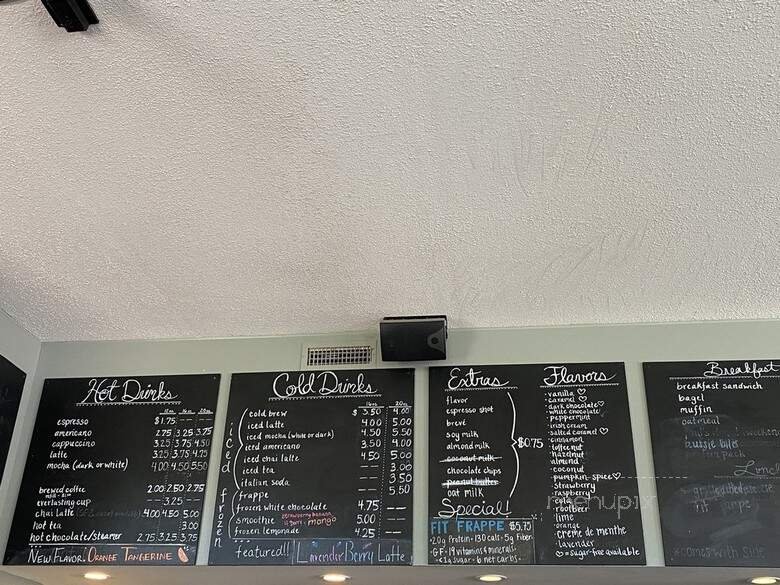 Hot Drinks
12oz. 16oz. 20oz.
espresso $1.75 — —
americano 2.75 3.25 3.75
cappuccino 3.25 3.75 4.50
latte 3.25 3.75 4.25
mocha (dark or white) 4.00 4.50 5.50
brewed coffee 2.00 2.50 2.75
everlasting cup — 3.25 —
chai latte 4.00 4.50 5.00
hot tea 3.00
hot chocolate/steamer 2.75 3.25 3.75
New Flavor: Orange Tangerine
Cold Drinks
16oz. 20oz.
iced
cold brew $3.50 4.00
iced latte 4.00 5.00
iced mocha (white or dark) 4.50 5.50
iced americano 3.50 4.00
iced chai latte 4.50 5.00
iced tea — 3.00
italian soda — 3.50
frozen
frappe — 5.50
frozen white chocolate 4.75 —
smoothie strawberry banana mango 5.00 —
frozen lemonade 4.25 —
featured!! Lavender Berry Latte
Extras
flavor
espresso shot
brevé
soy milk
almond milk
coconut milk
chocolate chips
peanut butter
oat milk
$0.75
Special!
FIT FRAPPE $5.75
20g Protein · 130 cals · 5g Fiber
GF · 19 vitamins & minerals
<1g sugar · 6 net carbs
Flavors
· vanilla ♡
· caramel ♡
· dark chocolate ♡
· white chocolate
· peppermint
· irish cream
· salted caramel ♡
· cinnamon
· toffee nut
· hazelnut
· almond
· coconut
· pumpkin spice ♡
· strawberry
· raspberry
· rootbeer
· lime
· orange
· creme de menthe
· lavender
♡ = sugar-free available
Breakfast
breakfast sandwich
bagel
muffin
oatmeal
menupix